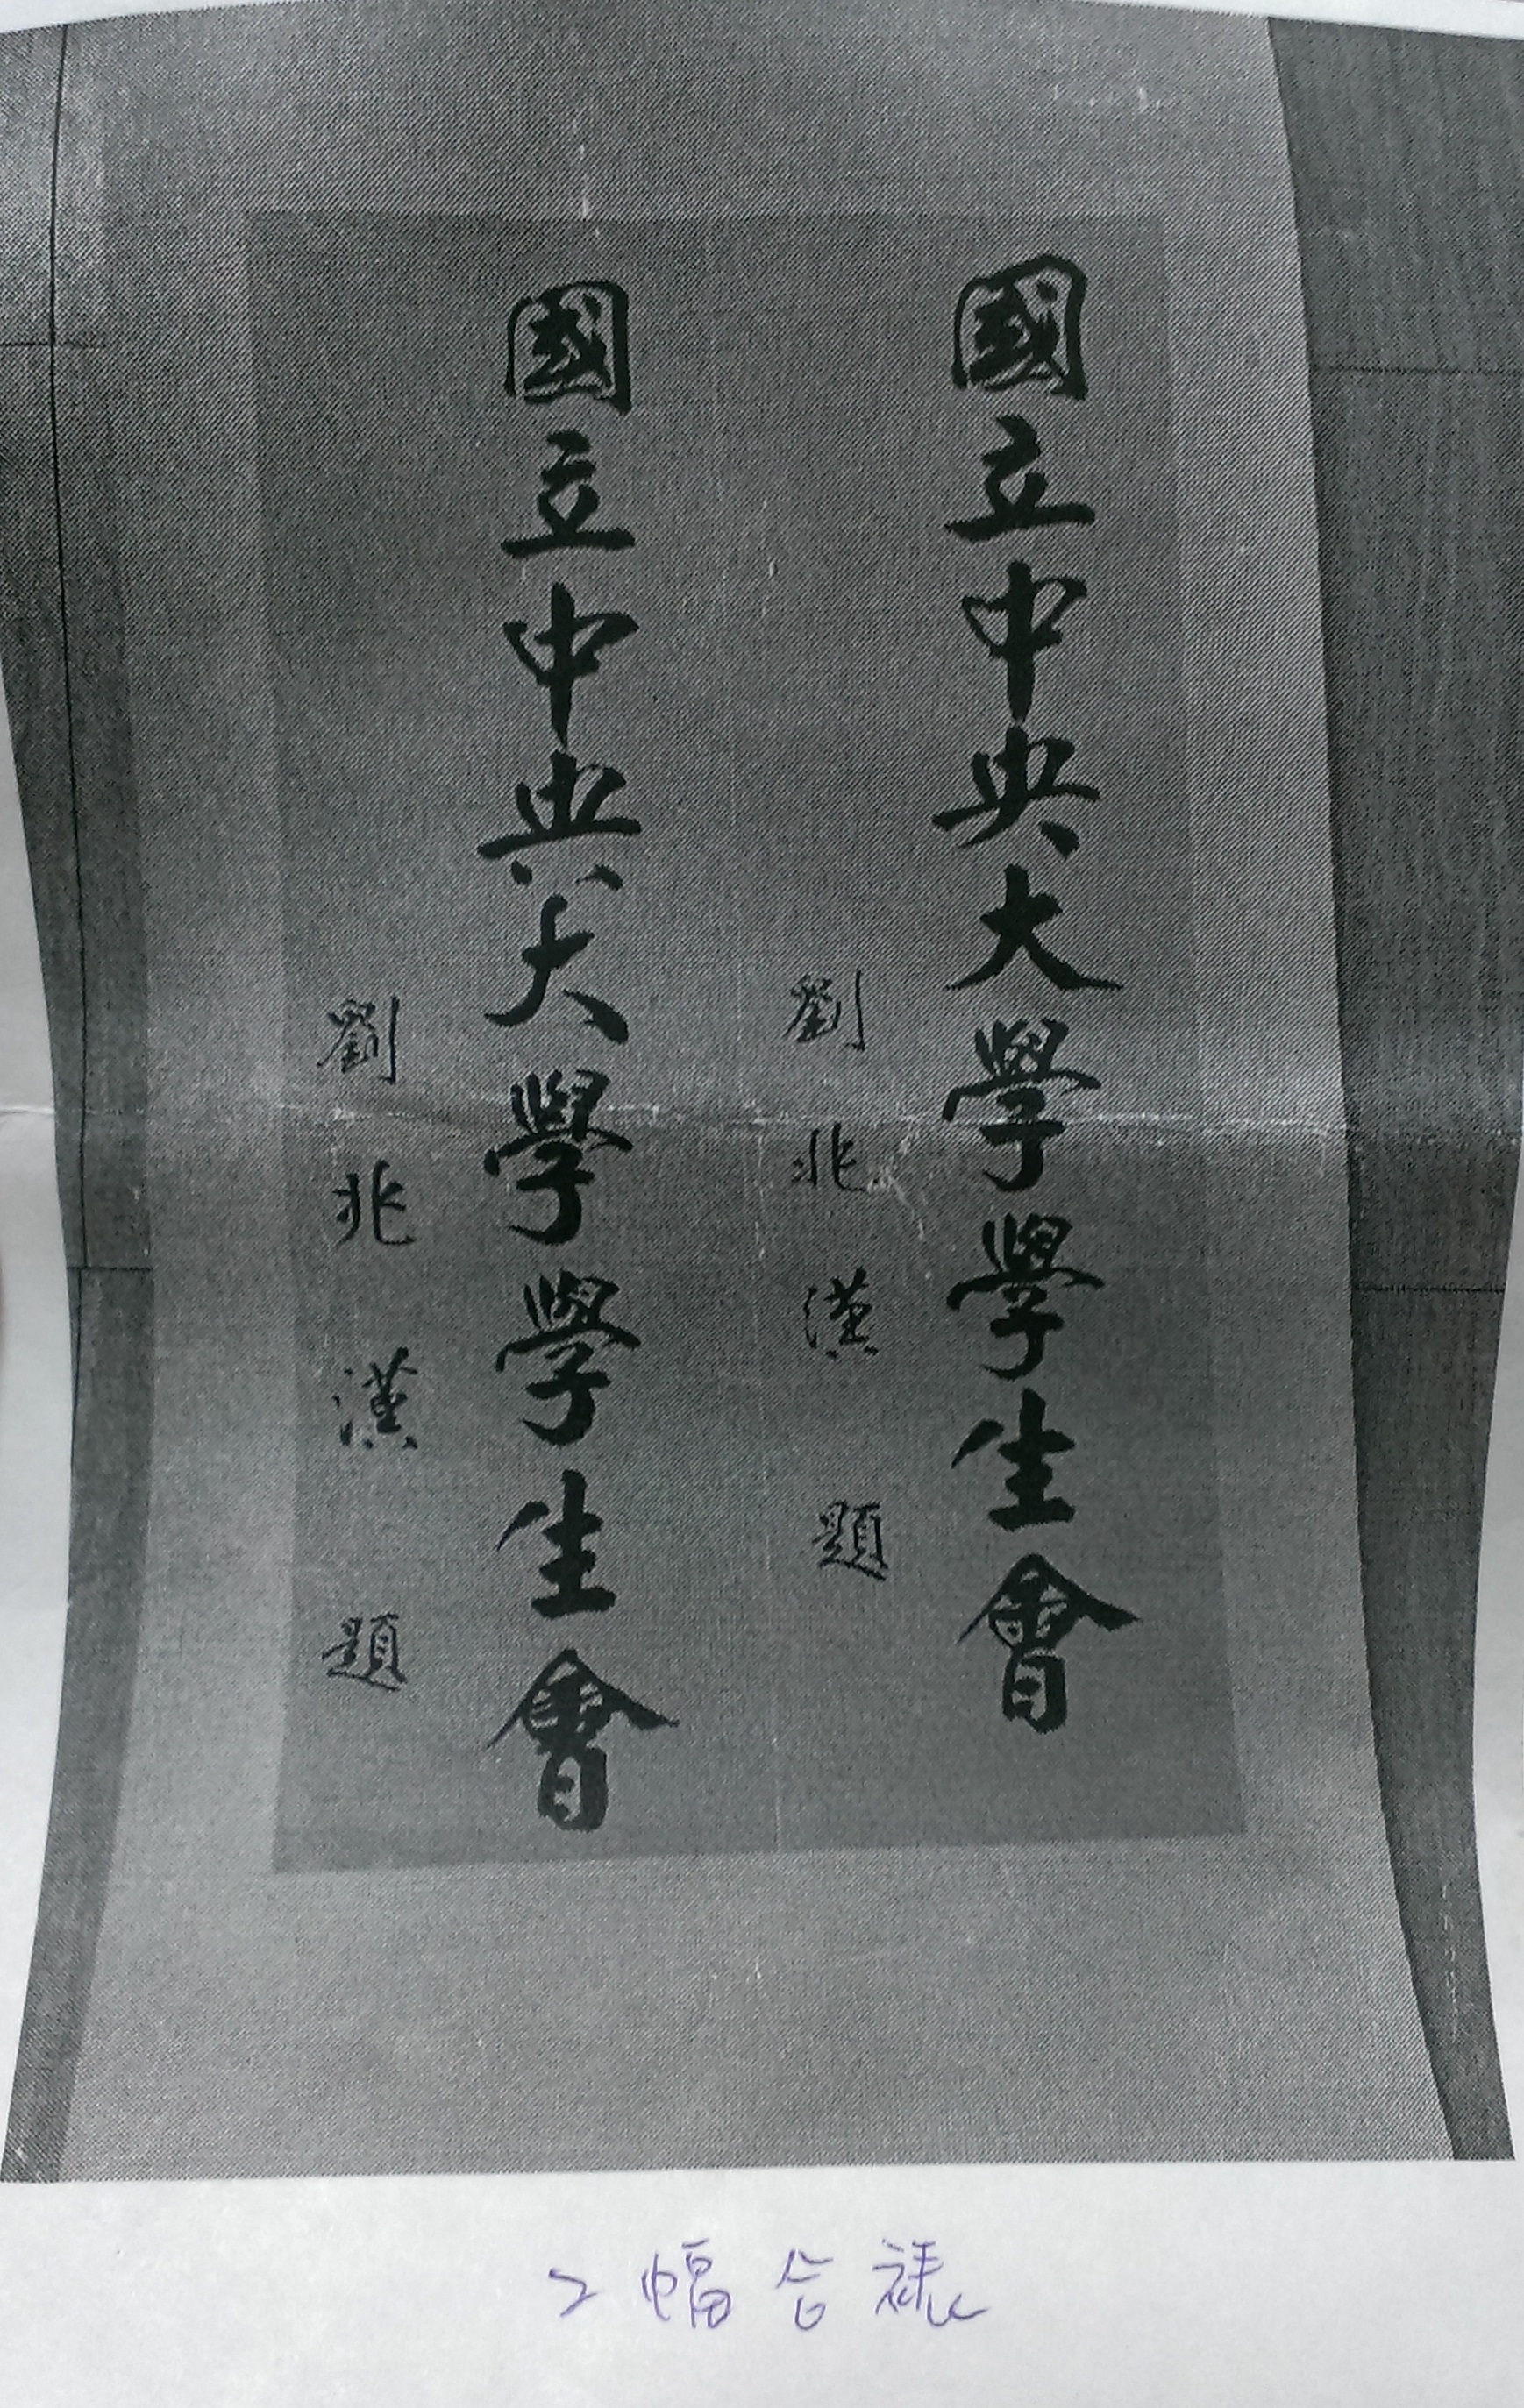 國立中央大學學生會
劉兆漢題
國立中央大學學生會
劉兆漢題
2幅合裱